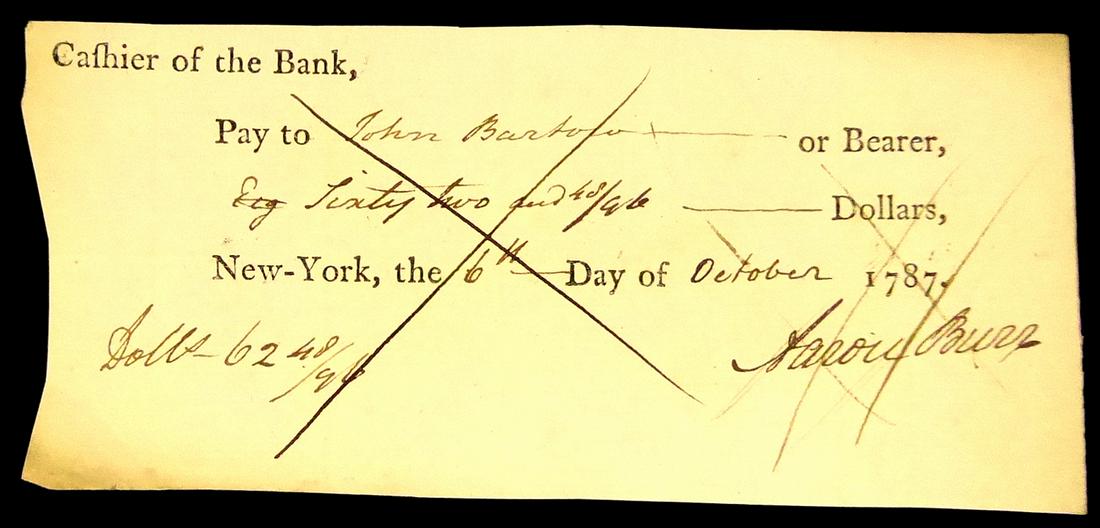 Caſhier of the Bank,
Pay to John Bartow or Bearer,
Eig Sixty two and 48/96 Dollars,
New-York, the 6th Day of October 1787.
Dolls 62 48/96 Aaron Burr